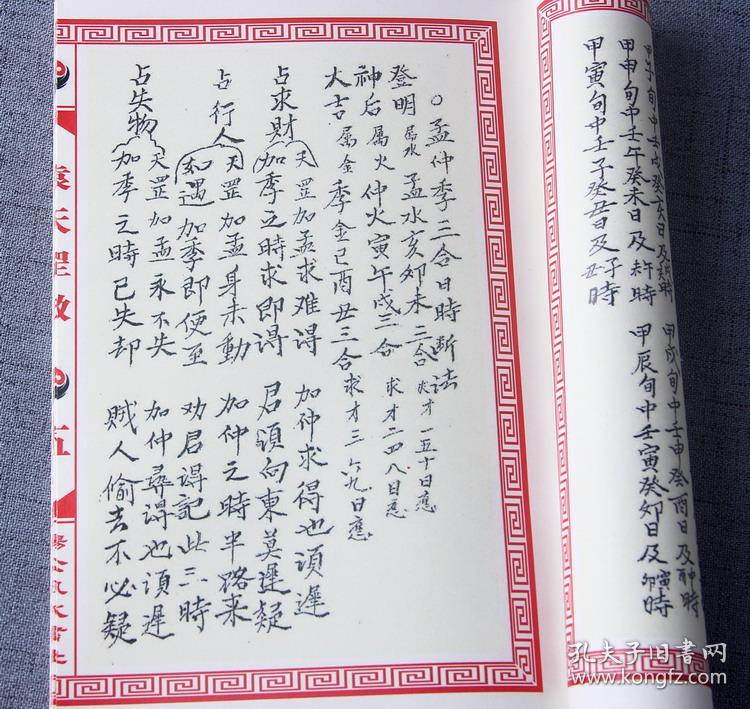 甲子旬中壬戌癸亥日及戌亥時 甲戌旬中壬申癸酉日及申酉時
甲申旬中壬午癸未日及午未時 甲辰旬中壬寅癸卯日及寅卯時
甲寅旬中壬子癸丑日及子丑時
○孟仲季三合日時断法
登明属水孟水亥卯未三合求才一五十日應
神后属火仲火寅午戌三合求才二四八日應
大吉属金季金巳酉丑三合求才三六九日應
占求財 天罡加孟求难得 加仲求得也須遲
加季之時求即得 君須向東莫遲疑
占行人 天罡加孟身未動 加仲之時半路来
如遇加季即便至 劝君得記此三時
占失物 天罡加孟永不失 加仲尋得也須遲
加季之時已失却 賊人偷去不必疑
袁天罡数
伍
孔夫子旧书网
www.kongfz.com